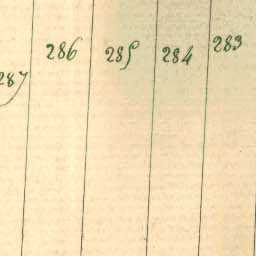 287 286 285 284 283